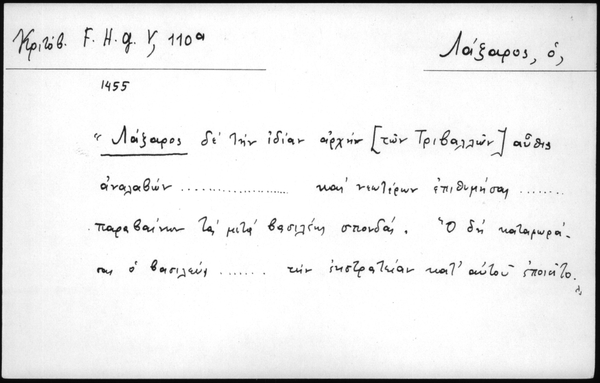 Κριτόβ. F. H. g. V, 110α
Λάξαρος, ὁ,
1455
"Λάξαρος δέ τήν ἰδίαν ἀρχήν [τῶν Τριβαλλῶν] αὖθις
ἀναλαβών .................... καί νεωτέρων ἐπιθυμήσας ........
παραβαίνων τάς μετά βασιλέως σπονδάς. Ὁ δέ καταμωρά-
σας ὁ βασιλεύς ........ τήν ἐκστρατείαν κατ' αὐτοῦ ἐποιεῖτο.